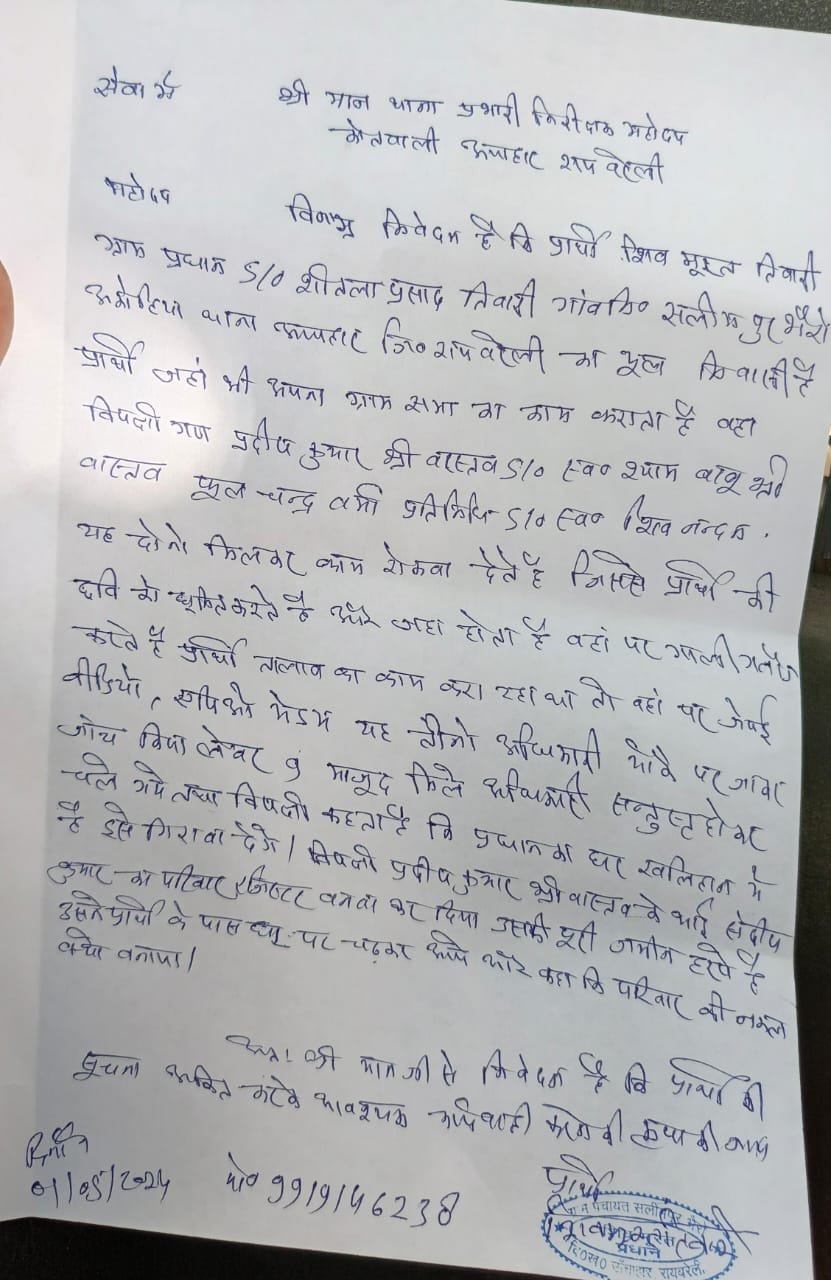 सेवा में श्री मान थाना प्रभारी निरीक्षक महोदय
कोतवाली ऊंचाहार रायबरेली
महोदय विनम्र निवेदन है कि प्रार्थी शिव मूरत तिवारी
ग्राम प्रधान S/o शीतला प्रसाद तिवारी गांव नि० सलीमपुर भैरो
थाना ऊंचाहार जि० रायबरेली का मूल निवासी है
प्रार्थी जहां भी अपना ग्राम सभा का काम कराता है वहा
विपक्षी गण प्रदीप कुमार श्री वास्तव S/o स्व० श्याम बाबू श्री
वास्तव फूल चन्द्र वर्मा प्रतिनिधि S/o स्व० शिव नन्दन
यह दोनो मिलकर काम रोकवा देते है जिससे प्रार्थी की
छवि को धूमिल करते है और जहा होता है वहां पर गाली गलौज
करते है प्रार्थी तालाब का काम करा रहा था तो वहां पर जेई
वीडियो, एपिओ मेडम यह तीनो अधिकारी मौके पर जाकर
जांच किया लेबर मौजूद मिले अधिकारी सन्तुस्ट होकर
चले गये तथा विपक्षी कहता है कि प्रधान का घर खलिहान मे
है इसे गिरावा देगे। विपक्षी प्रदीप कुमार श्री वास्तव के भाई संदीप
कुमार का परिवार रजिस्टर बनवा कर दिया उसकी पूरी जमीन हरपे है
उसने प्रार्थी के पास घर पर चढ़कर आये और कहा कि परिवार की नकल
क्यो बनाया।
अतः श्री मान जी से निवेदन है कि प्रार्थी की
सूचना अंकित करके आवश्यक कार्यवाही करने की कृपा की जाय
दिनाँक प्रार्थी
01/05/2024 मो० 9919146238
ग्राम पंचायत सलीमपुर भैरो
प्रधान
वि०ख० ऊंचाहार रायबरेली